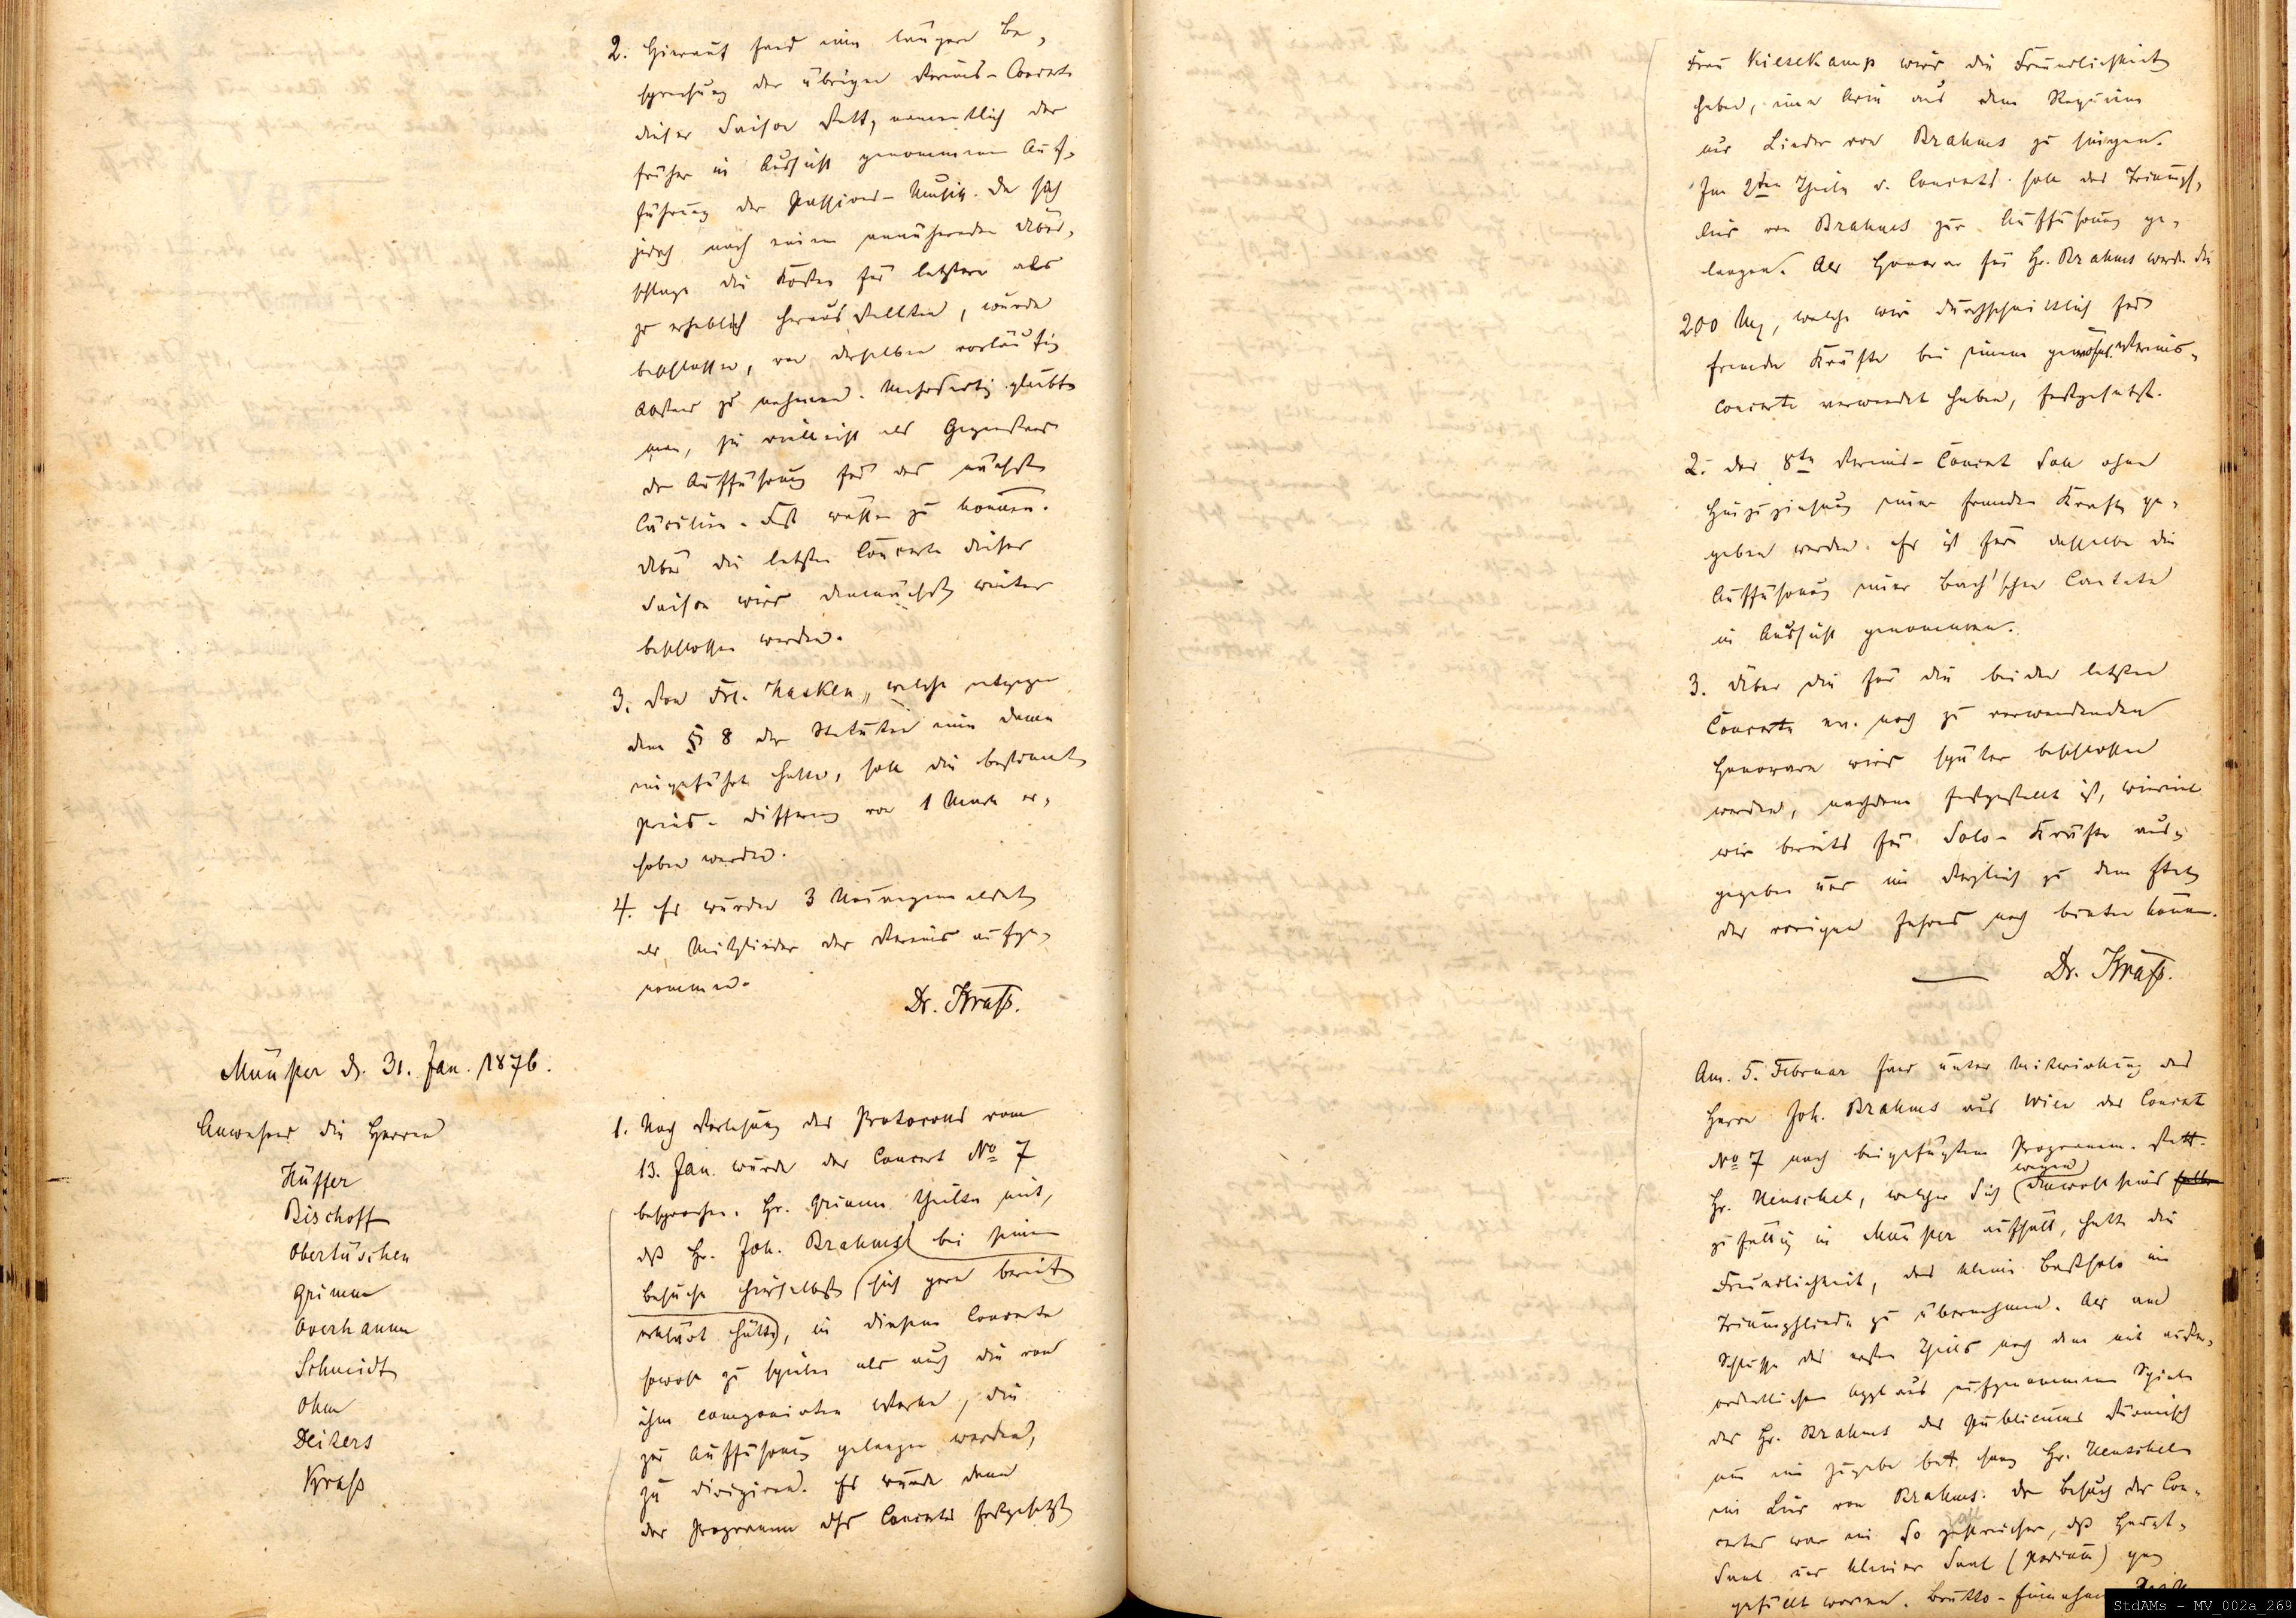 2. Hierauf fand eine längere Be-
sprechung der übrigen Vereins-Concerte
dieser Saison statt, namentlich der
früher in Aussicht genommenen Auf-
führung der Passions-Musik. Da sich
jedoch nach einem annähernden Über-
schlage die Kosten für letztere als
zu erheblich herausstellten, wurde
beschlossen, von derselben vorläufig
Abstand zu nehmen. glaubte
man, sie vielleicht als Gegenstand
der Aufführung für das nächste
Cäcilien-Fest wählen zu können.
Über die letzten Concerte dieser
Saison wird demnächst weiter
beschlossen werden.
3. Von Frl. welche entgegen
dem § 8 der Statuten eine Dame
eingeführt hatte, soll die bestimmte
Preis-Differenz von 1 Mark er-
hoben werden.
4. Es wurden 3 Neuangemeldete
als Mitglieder des Vereins aufge-
nommen.
Dr. Kraß.
Münster d. 31. Jan. 1876.
Anwesend die Herren
Hüffer
Bischoff
Obertüschen
Grimm
Overhamm
Schmidt
Ohm
Deiters
Kraß
1. Nach Verlesung des Protocolls vom
13. Jan. wurde das Concert No 7
besprochen. Hr. Grimm theilte mit,
daß Hr. Joh. Brahms bei seinem
Besuche hierselbst sich gern bereit
erklärt hätte, in diesem Concerte
sowohl zu spielen als auch die von
ihm componirten Werke, die
zur Aufführung gelangen werden,
zu dirigiren. Es wurde dann
das Programm des Concertes festgesetzt
Frau Kiesekamp wird die Freundlichkeit
haben, eine Arie aus dem Requiem
und Lieder von Brahms zu singen.
Im 2ten Theile d. Concerts soll das Triumph-
lied von Brahms zur Aufführung ge-
langen. Als Honorar für Hr. Brahms werden die
200 Mk, welche wir durchschnittlich für
fremde Kräfte bei einem gewöhnl. Vereins-
concerte verwendet haben, festgesetzt.
2. Das 8te Vereins-Concert soll ohne
Hinzuziehung einer fremden Kraft ge-
geben werden. Es ist für dasselbe die
Aufführung einer Bach'schen Cantate
in Aussicht genommen.
3. Über die für die beiden letzten
Concerte ev. noch zu verwendenden
Honorare wird später beschlossen
werden, nachdem festgestellt ist, wieviel
wir bereits für Solo-Kräfte aus-
gegeben und im Vergleich zu dem Etat
des vorigen Jahres noch bieten können.
Dr. Kraß.
Am. 5. Februar fand unter Mitwirkung des
Herrn Joh. Brahms aus Wien das Concert
No 7 nach beigefügtem Programm statt.
Hr. Henschel, welcher sich
zufällig in Münster aufhält, hatte die
Freundlichkeit, das kleine Baßsolo im
Triumphliede zu übernehmen. Als am
Schlusse des ersten Theils nach dem mit außer-
ordentlichem Applaus aufgenommenen Spiele
des Hr. Brahms das Publicum stürmisch
um eine Zugabe bat, sang Hr. Henschel
ein Lied von Brahms. Der Besuch des Con-
certes war ein so zahlreicher, daß Haupt-
Saal und kleiner Saal (Podium) ganz
gefüllt waren. Brutto-
StdAMs - MV_002a_269